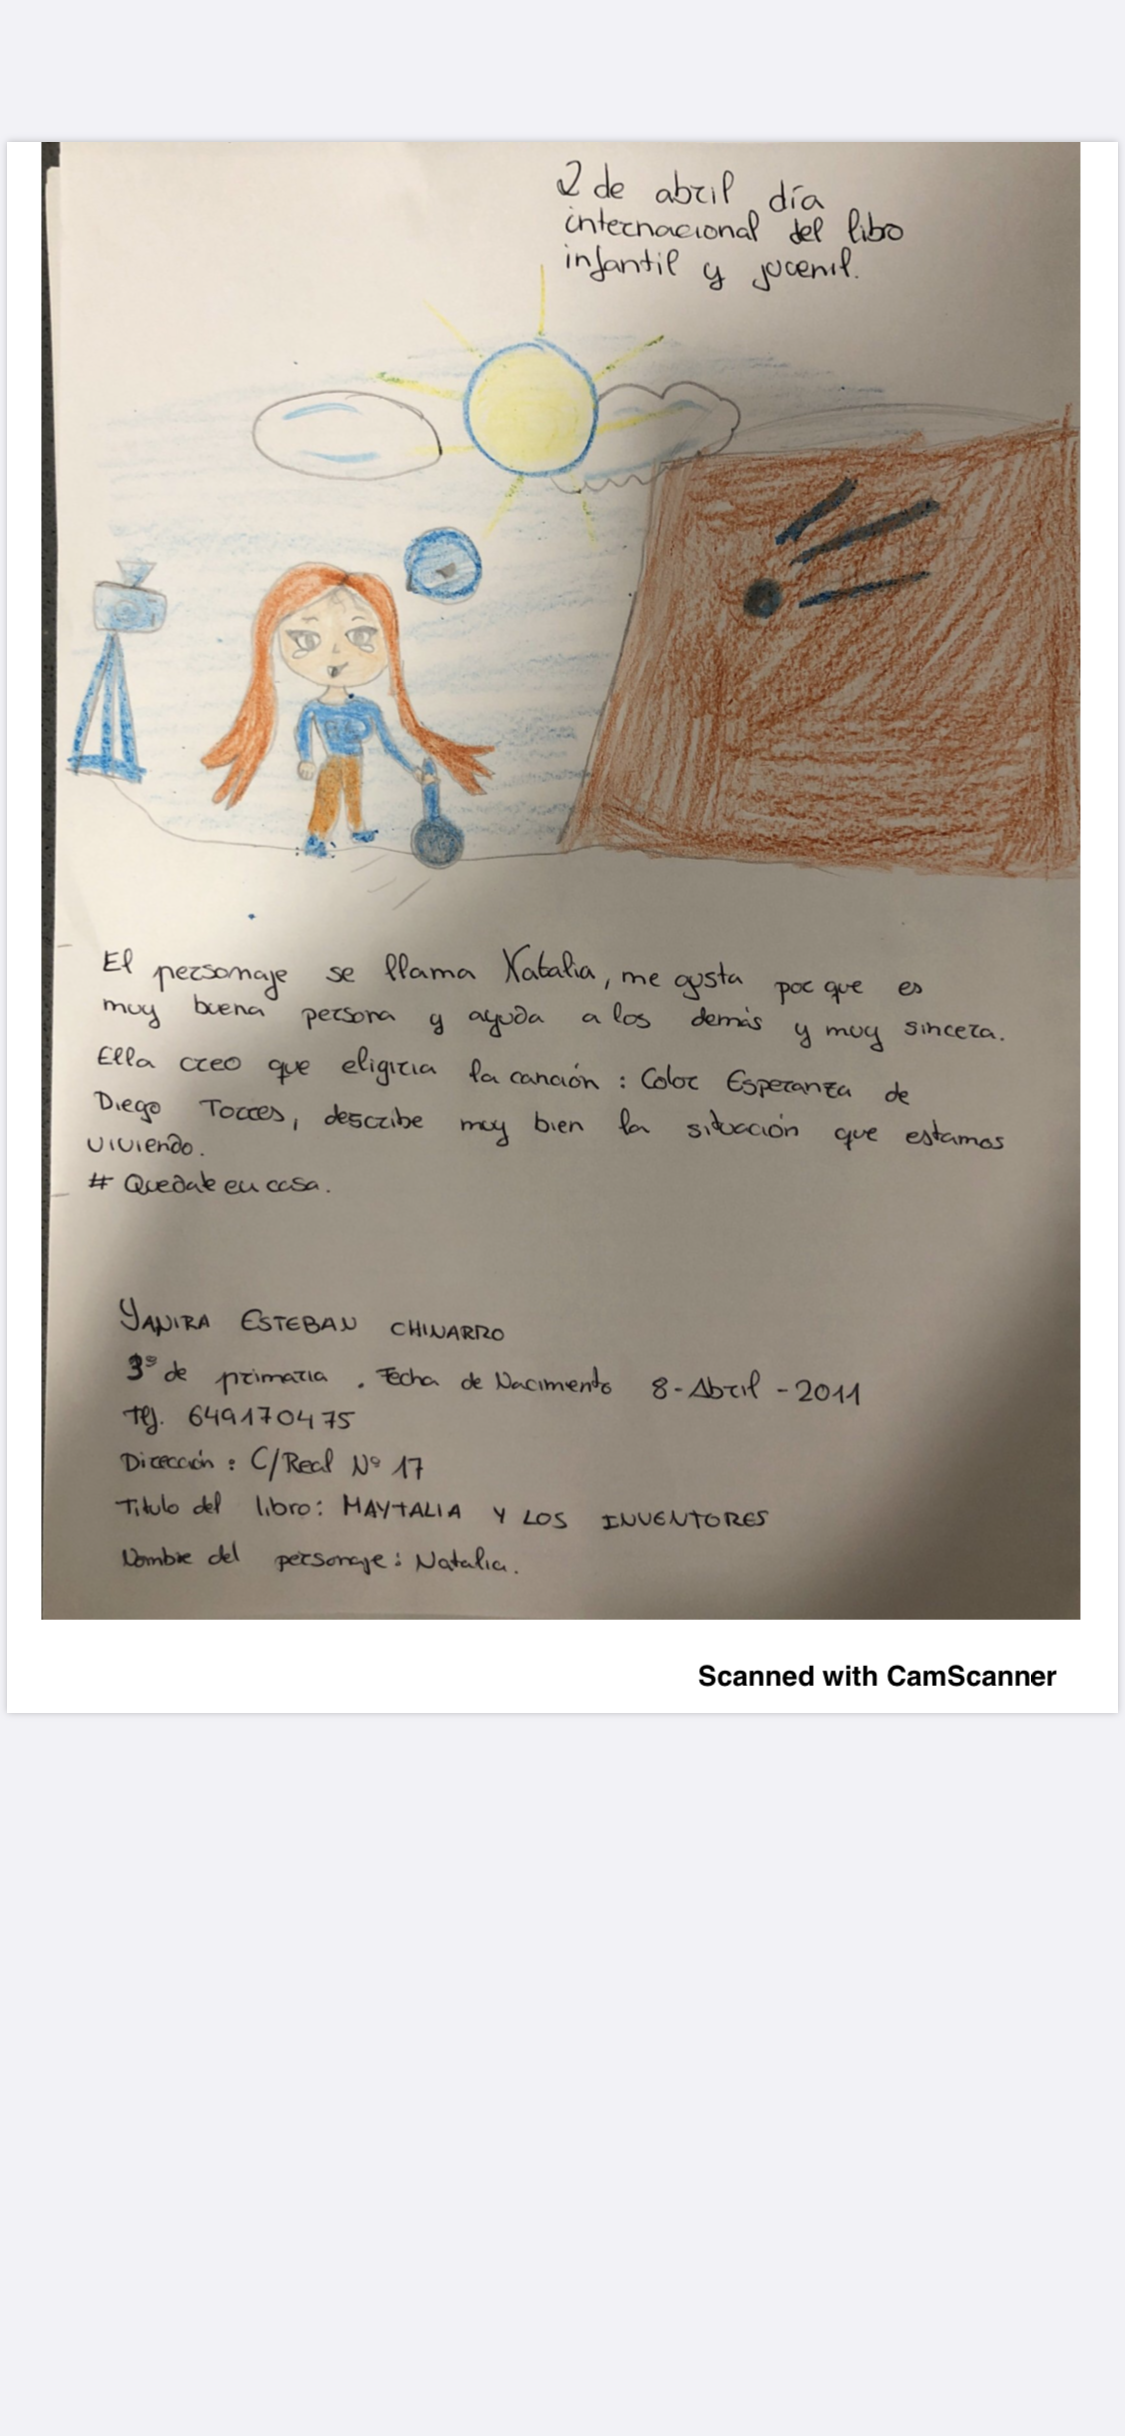 2 de abril día
internacional del libro
infantil y juvenil.
El personaje se llama Natalia, me gusta por que es
muy buena persona y ayuda a los demás y muy sincera.
Ella creo que eligiria la canción: Color Esperanza de
Diego Torres, describe muy bien la situación que estamos
viviendo.
# Quedate en casa.
YANIRA ESTEBAN CHINARRO
3º de primaria. Fecha de Nacimiento 8-Abril-2011
Tlf. 649170475
Dirección: C/Real Nº 17
Titulo del libro: MAYTALIA Y LOS INVENTORES
Nombre del personaje: Natalia.
Scanned with CamScanner